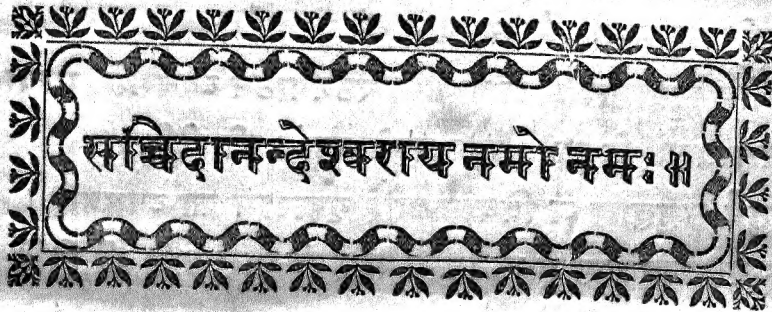 सच्चिदानन्देश्वराय नमो नमः ॥